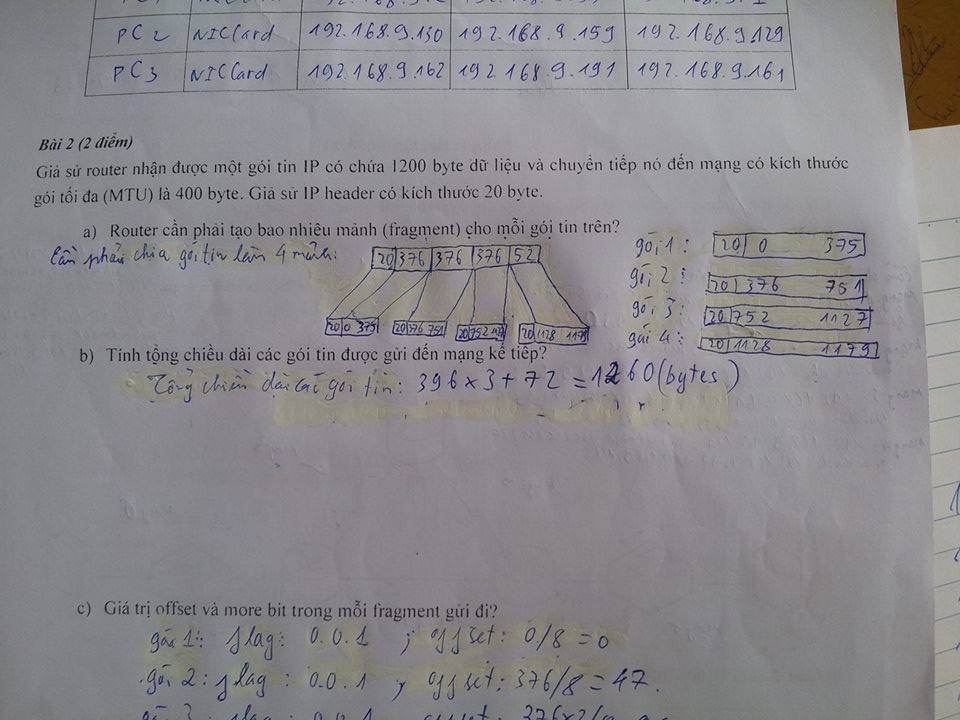 PC2 NICCard 192.168.9.130 192.168.9.159 192.168.9.129
PC3 NICCard 192.168.9.162 192.168.9.191 192.168.9.161
Bài 2 (2 điểm)
Giả sử router nhận được một gói tin IP có chứa 1200 byte dữ liệu và chuyển tiếp nó đến mạng có kích thước
gói tối đa (MTU) là 400 byte. Giả sử IP header có kích thước 20 byte.
a) Router cần phải tạo bao nhiêu mảnh (fragment) cho mỗi gói tin trên?
Cần phải chia gói tin làm 4 mảnh:
20 376 376 376 52
20 0 375 20 376 751 20 752 1127 20 1128 1179
gói 1: 20 0 375
gói 2: 20 376 751
gói 3: 20 752 1127
gói 4: 20 1128 1179
b) Tính tổng chiều dài các gói tin được gửi đến mạng kế tiếp?
Tổng chiều dài các gói tin: 396 x 3 + 72 = 1260 (bytes)
c) Giá trị offset và more bit trong mỗi fragment gửi đi?
gói 1: flag: 0.0.1 ; offset: 0/8 = 0
gói 2: flag: 0.0.1 ; offset: 376/8 = 47.
gói 3: flag: 0.0.1 offset: 376x2/